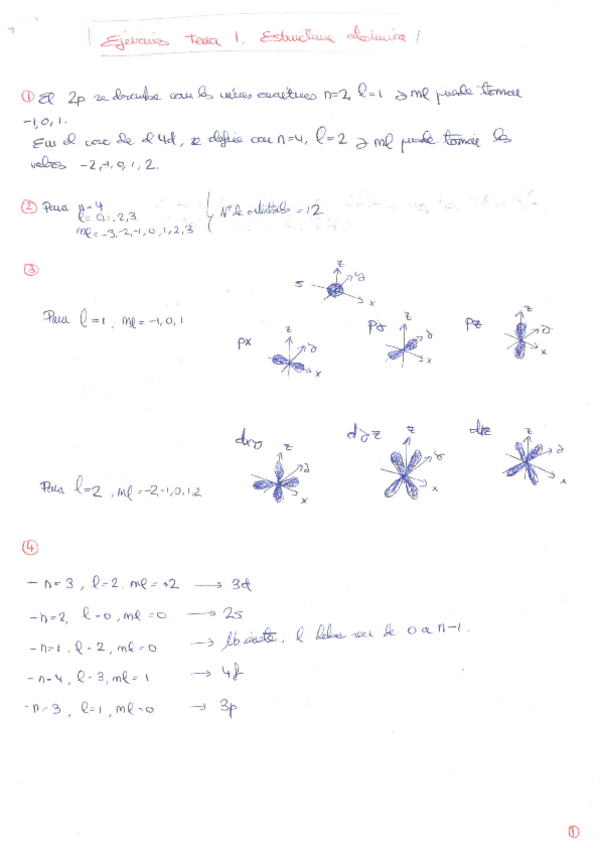 Ejercicios Tema 1. Estructura atómica
① El 2p se describe con los números cuánticos n=2, l=1 y ml puede tomar
-1, 0, 1.
En el caso de el 4d, se define con n=4, l=2 y ml puede tomar los
valores -2, -1, 0, 1, 2.
② Para n=4
l=0, 1, 2, 3
ml=-3, -2, -1, 0, 1, 2, 3
Nº de orbitales = 12
③
z
s
y
x
Para l=1, ml=-1, 0, 1
px
z
y
x
py
z
y
x
pz
z
y
x
Para l=2, ml=-2, -1, 0, 1, 2
dxy
z
y
x
dyz
z
y
x
dxz
z
y
x
④
- n=3, l=2, ml=+2 → 3d
- n=2, l=0, ml=0 → 2s
- n=1, l=2, ml=0 → No existe, l debe ser de 0 a n-1.
- n=4, l=3, ml=1 → 4f
- n=3, l=1, ml=0 → 3p
①